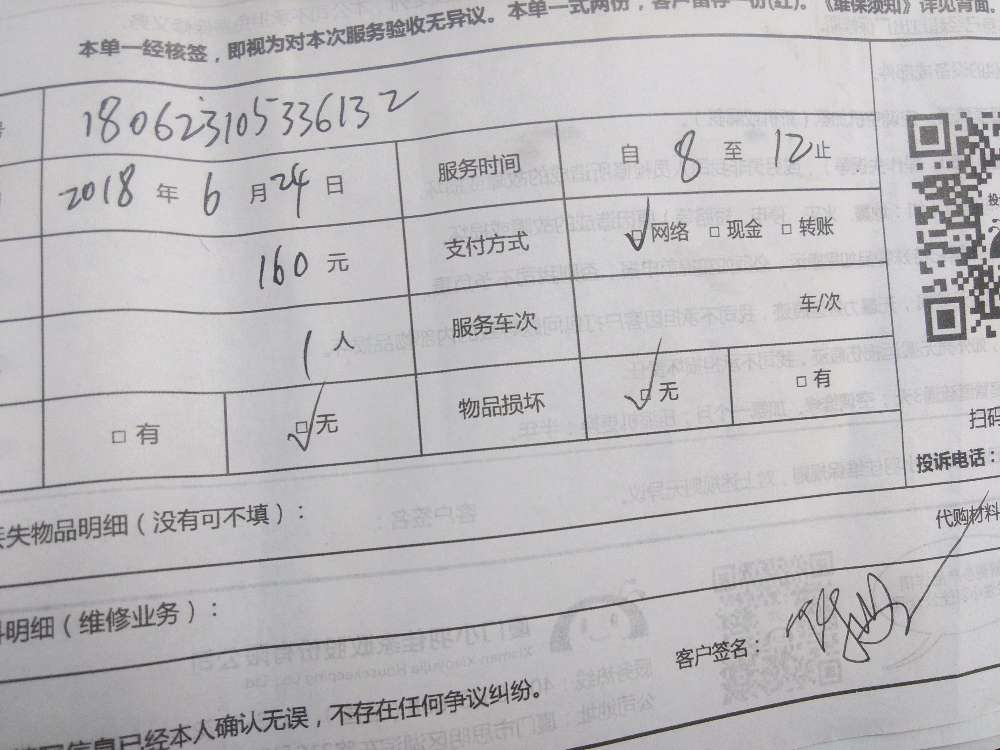 本单一经核签，即视为对本次服务验收无异议。本单一式两份，客户留存一份(红)。《维保须知》详见背面。
180623105336132
2018 年 6 月 24 日 服务时间 自 8 至 12 止
160 元 支付方式 □网络 □现金 □转账
1 人 服务车次 车/次
□ 有 □无 物品损坏 □无 □有
扫码
投诉电话：
失物品明细（没有可不填）：
代购材料
明细（维修业务）：
客户签名：
信息已经本人确认无误，不存在任何争议纠纷。